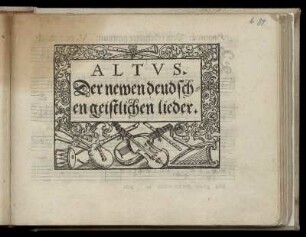 ALTVS.
Der newen deudsch-
en geistlichen lieder.